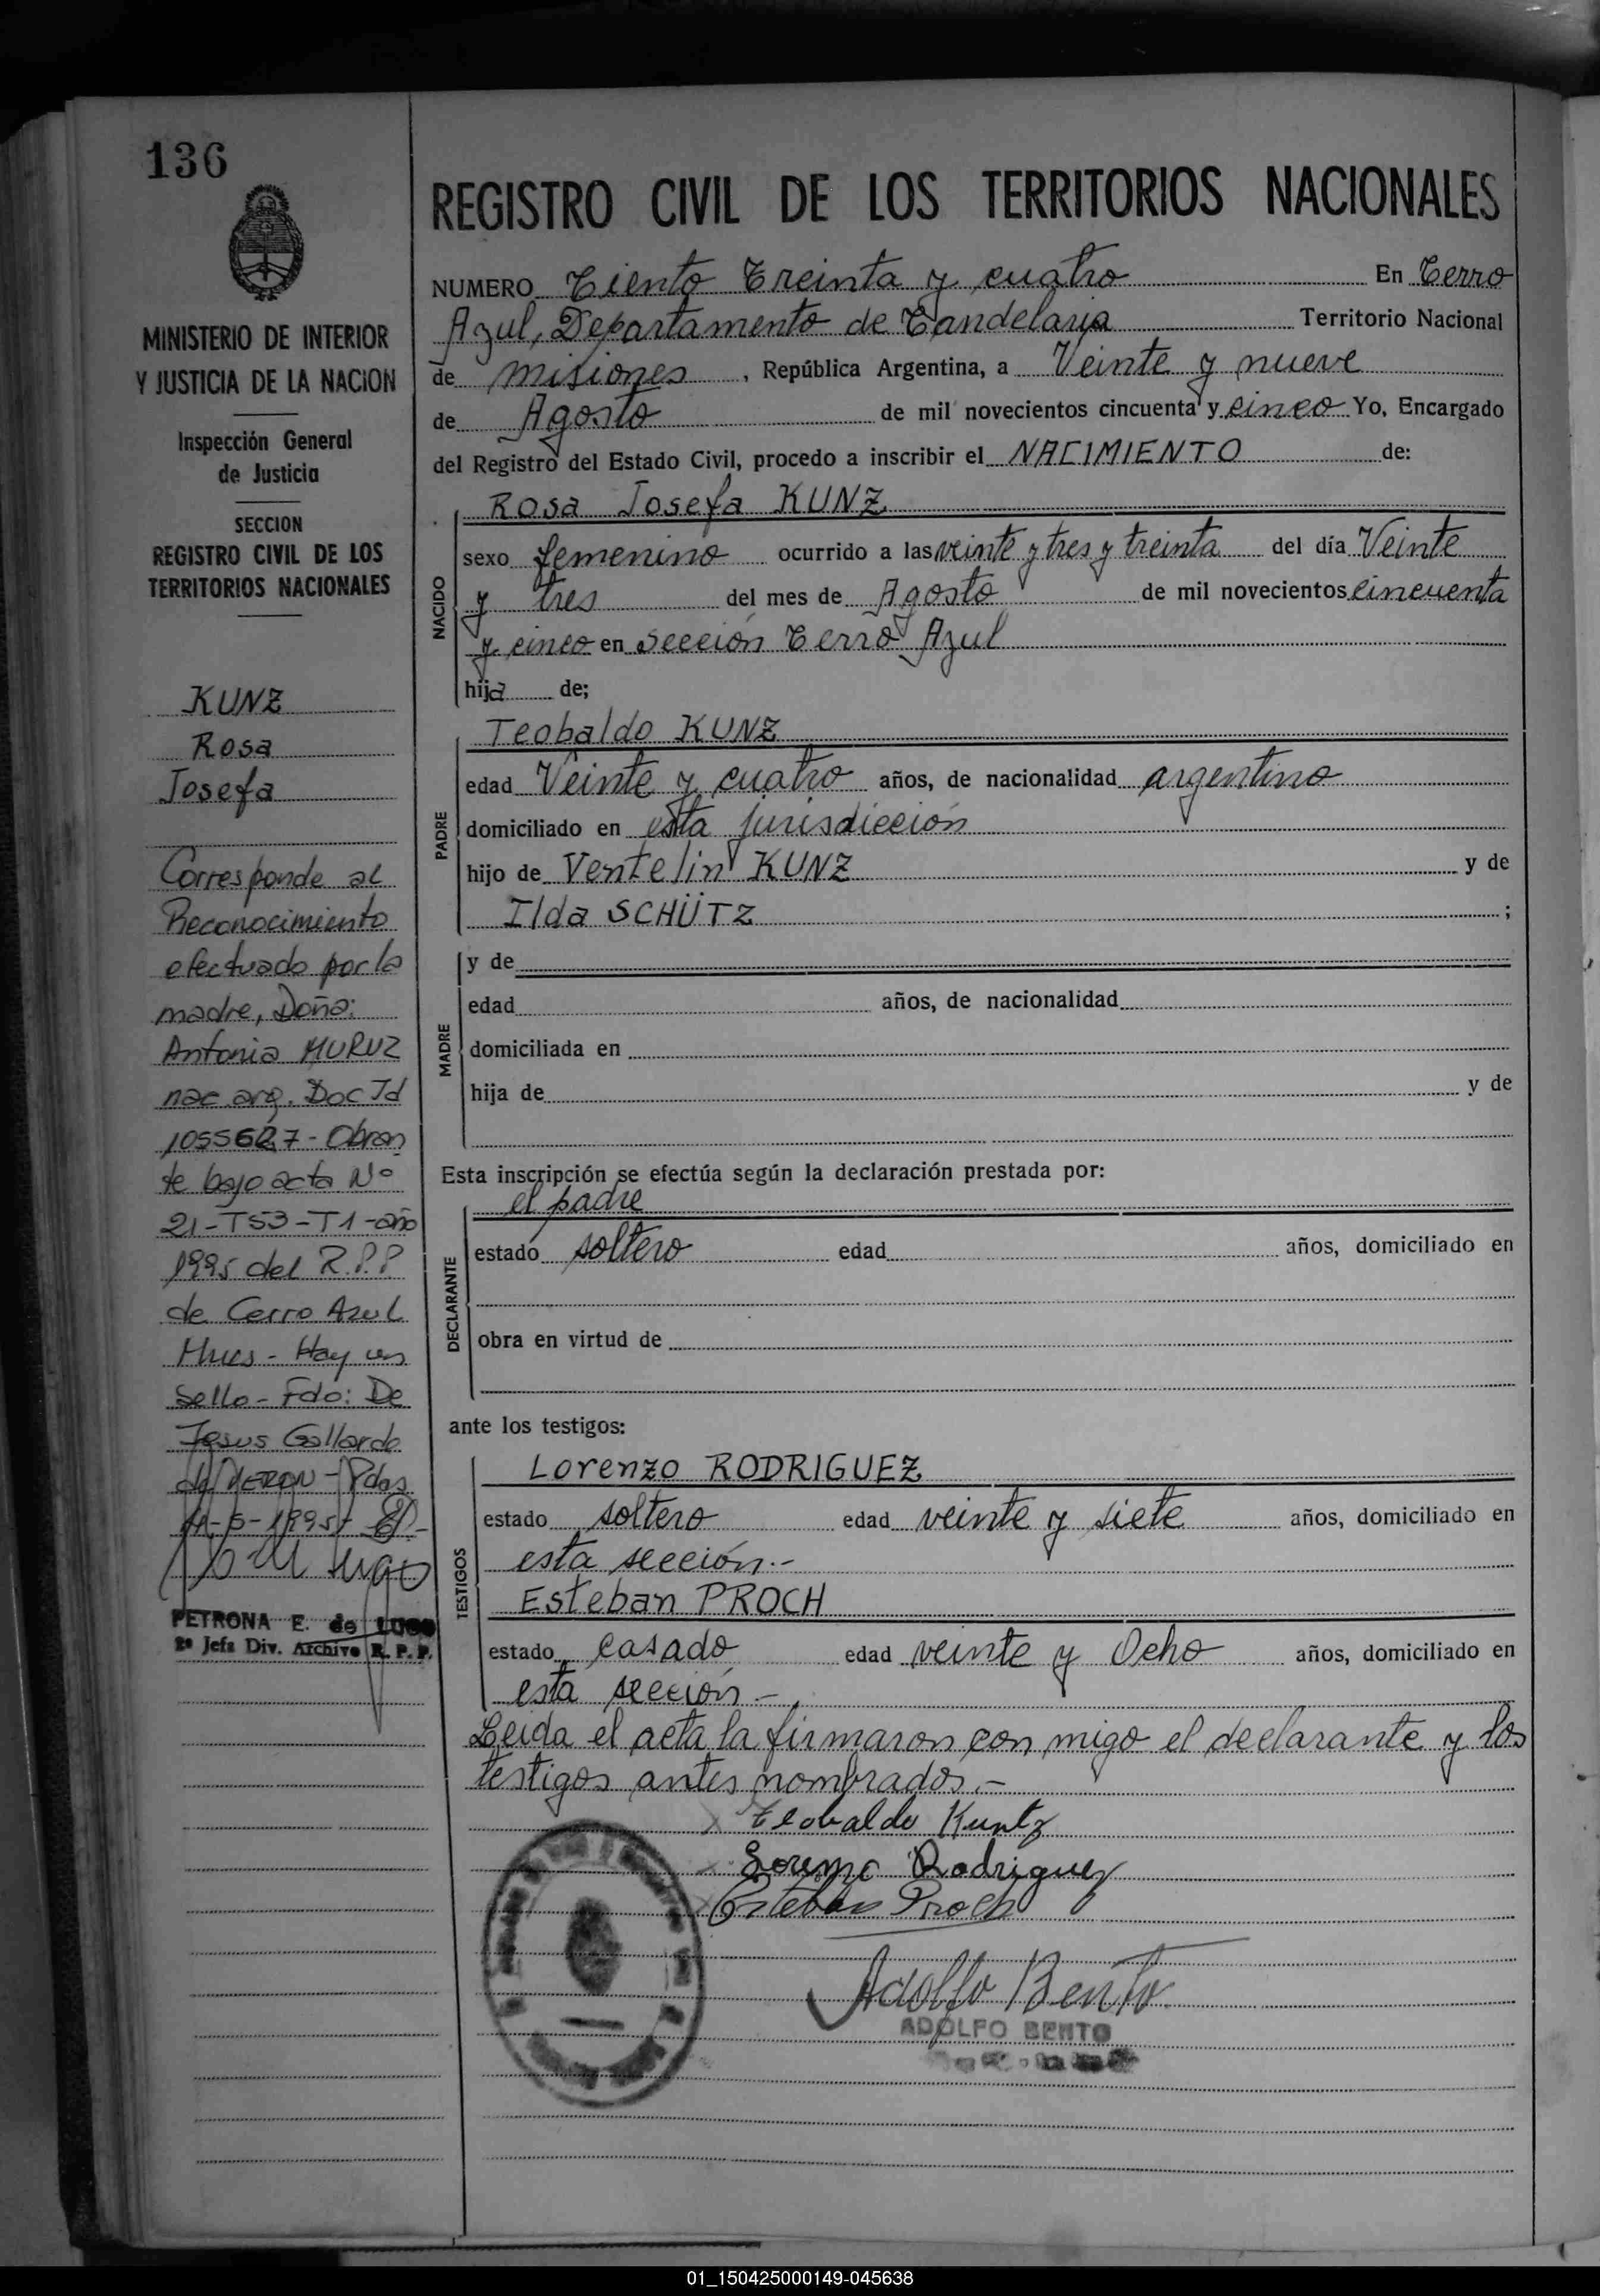 136
MINISTERIO DE INTERIOR
Y JUSTICIA DE LA NACION
Inspección General
de Justicia
SECCION
REGISTRO CIVIL DE LOS
TERRITORIOS NACIONALES
KUNZ
Rosa
Josefa
Corresponde al
Reconocimiento
efectuado por la
madre, Doña:
Antonia MURUZ
nac arg. Doc Id
1055627 - Obran
te bajo acta Nº
21-T53-T1-año
1995 del R.P.P
de Cerro Azul
Mnes - Hay un
Sello - Fdo: De
Jesus Gallardo
de - Pdas
-1995-
PETRONA E. de LUGO
2ª Jefa Div. Archivo R. P. P.
REGISTRO CIVIL DE LOS TERRITORIOS NACIONALES
NUMERO Ciento Treinta y cuatro En Cerro
Azul, Departamento de Candelaria Territorio Nacional
de misiones, República Argentina, a Veinte y nueve
de Agosto de mil novecientos cincuenta y cinco Yo, Encargado
del Registro del Estado Civil, procedo a inscribir el NACIMIENTO de:
NACIDO
Rosa Josefa KUNZ
sexo femenino ocurrido a las veinte y tres y treinta del día Veinte
y tres del mes de Agosto de mil novecientos cincuenta
y cinco en sección Cerro Azul
hija de;
PADRE
Teobaldo KUNZ
edad Veinte y cuatro años, de nacionalidad argentino
domiciliado en esta jurisdicción
hijo de Ventelin KUNZ y de
Ilda SCHÜTZ ;
MADRE
y de
edad años, de nacionalidad
domiciliada en
hija de y de
Esta inscripción se efectúa según la declaración prestada por:
DECLARANTE
el padre
estado soltero edad años, domiciliado en
obra en virtud de
ante los testigos:
TESTIGOS
Lorenzo RODRIGUEZ
estado soltero edad veinte y siete años, domiciliado en
esta sección.-
Esteban PROCH
estado casado edad veinte y Ocho años, domiciliado en
esta sección -.
Leida el acta la firmaron con migo el declarante y los
testigos antes nombrados.-
x Teobaldo Kuntz
x Lorenzo Rodriguez
x Esteban Proch
Adolfo Bento
ADOLFO BENTO
01_150425000149-045638